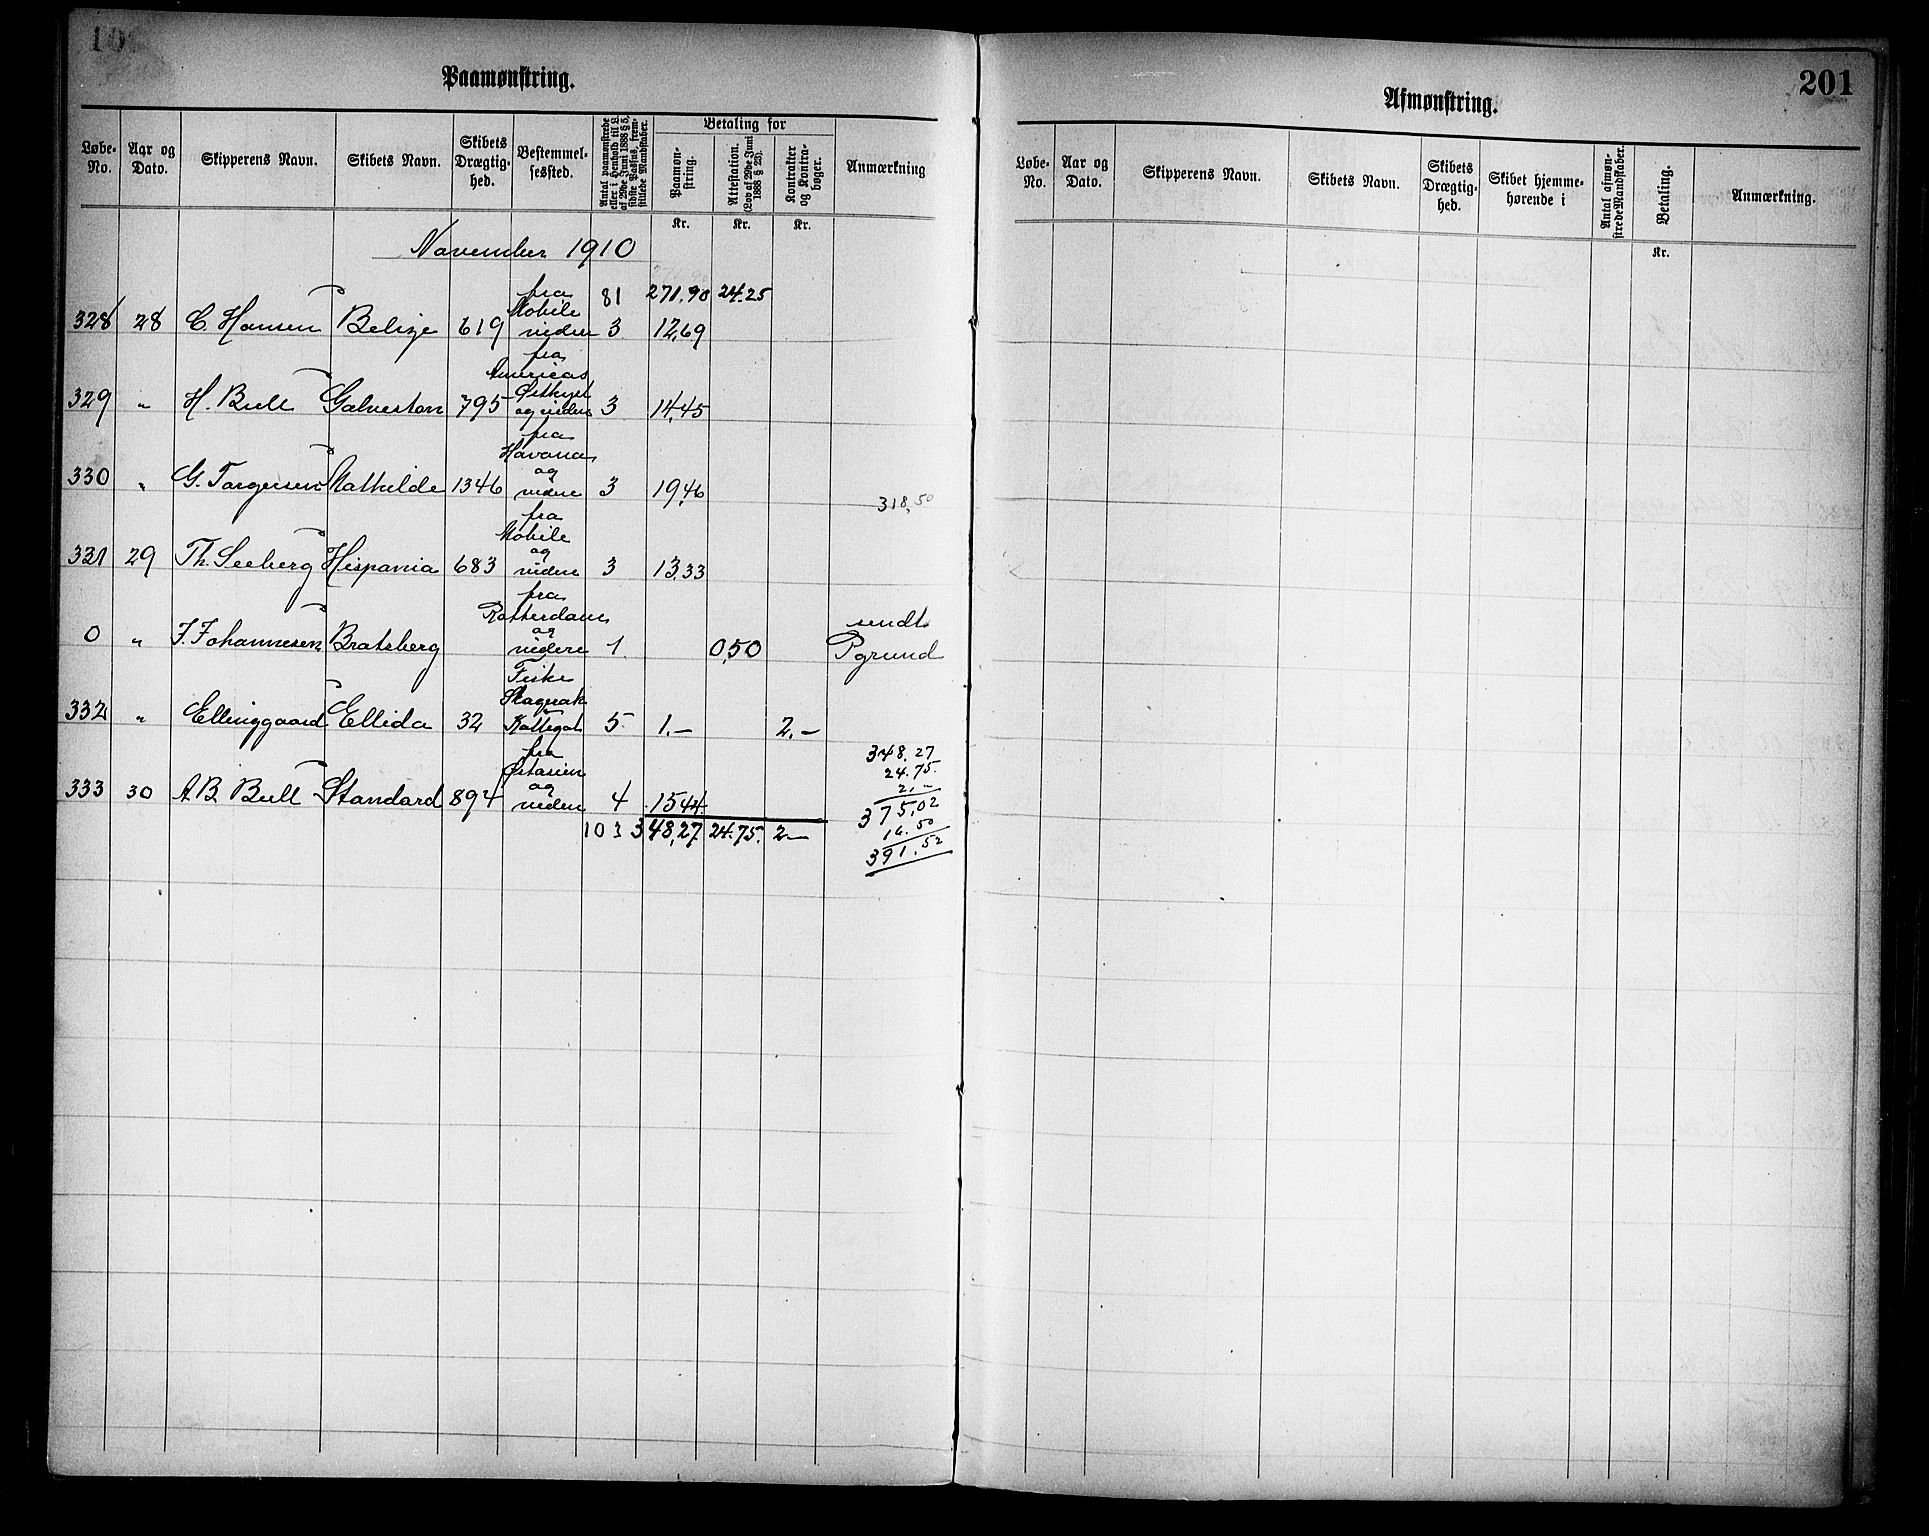 Paamønstring.
Løbe-No. | Aar og Dato. | Skipperens Navn. | Skibets Navn. | Skibets Drægtighed. | Bestemmelsessted. | Antal paamønstrede eller i Henhold til L. af 29de Juni 1888 § 5, sidste Passus, fremstillede Mandskaber. | Betaling for | Anmærkning
Paamønstring. | Attestation. (Lov af 29de Juni 1888 § 23). | Kontrakter og Kontrabøger.
Kr. | Kr. | Kr.
November 1910
81 | 271.90 | 24.25
328 | 28 | C. Hansen | Belize | 619 | fra Mobile videre | 3 | 12,69
329 | " | H. Bull | Galveston | 795 | fra Americas Østkyst og videre | 3 | 14,45
330 | " | G. Torgersen | Mathilde | 1346 | fra Havana og videre | 3 | 19,46 | 318,50
331 | 29 | Th. Seeberg | Hispania | 683 | fra Mobile og videre | 3 | 13,33
0 | " | J. Johannesen | Bratsberg | fra Rotterdam og videre | 1 | 0,50 | sendt Pgrund
332 | " | Ellinggaard | Ellida | 32 | Fiske Skagerak Kattegat | 5 | 1.- | 2.-
333 | 30 | A B Bull | Standard | 894 | fra Østasien og videre | 4 | 15 44
103 | 348,27 | 24.75. | 2.-
348.27
24.75.
2,-
375,02
16.50
391.52
201
Afmønstring.
Løbe-No. | Aar og Dato. | Skipperens Navn. | Skibets Navn. | Skibets Drægtighed. | Skibet hjemmehørende i | Antal afmønstrede Mandskaber. | Betaling. | Anmærkning.
Kr.